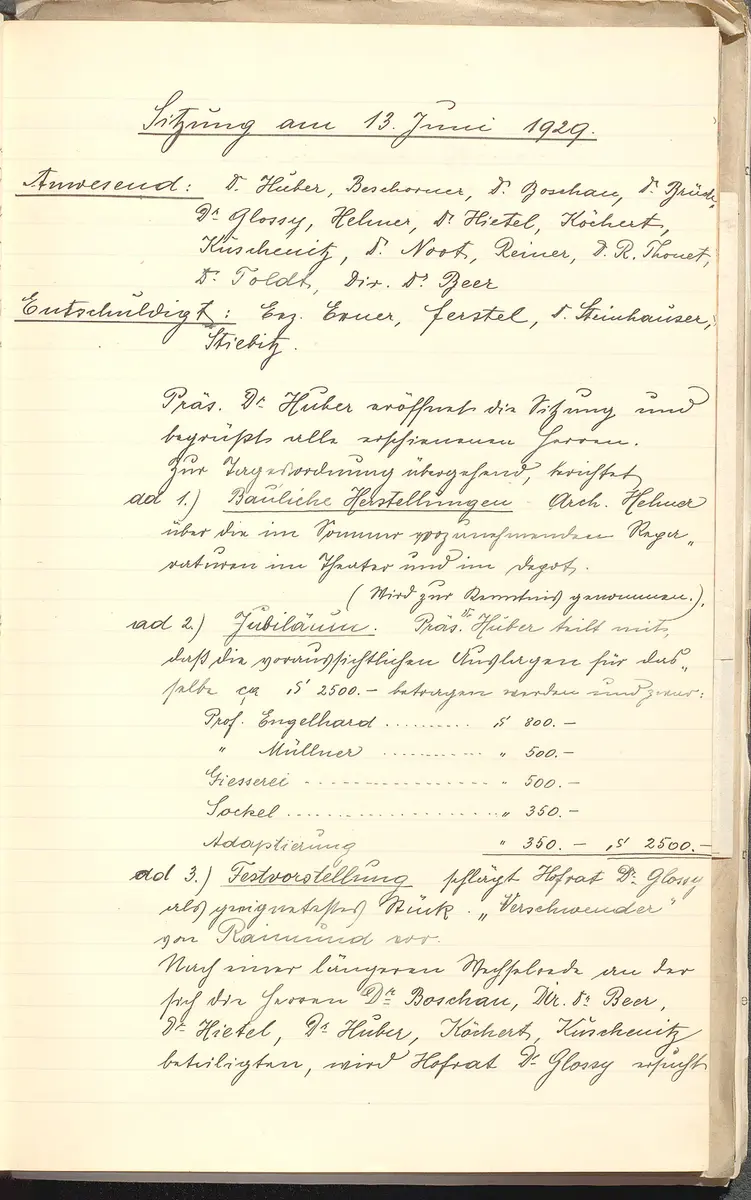 Sitzung am 13. Juni 1929.
Anwesend: Dr. Huber, Beschorner, Dr. Boschan, Dr.
Dr Glossy, Hehner, Dr Hietel, Köchert,
Kuschenitz, Dr. Noot, Reiner, D. R. Thonet,
Dr Toldt, Dir. Dr Beer
Entschuldigt: Exz. Exner, Ferstel, Dr. Steinhauser,
Stiebitz.
Präs. Dr Huber eröffnet die Sitzung und
begrüßt alle erschienenen Herren.
Zur Tagesordnung übergehend, berichtet
ad 1.) Bauliche Herstellungen Arch. Hehner
über die im Sommer vorzunehmenden Repa„
raturen im Theater und im Depot.
(Wird zur Kenntnis genommen.).
ad 2.) Jubiläum. Präs. Dr Huber teilt mit,
daß die voraussichtlichen Auslagen für das„
selbe ca S 2500.– betragen werden und zwar:
Prof. Engelhard .......... S 800.–
" Müllner .......... " 500.–
Giesserei .................. " 500.–
Sockel .................. " 350.–
Adaptierung " 350.– S 2500.–
ad 3.) Festvorstellung schlägt Hofrat Dr Glossy
als geeignetestes Stück. „Verschwender"
von Raimund vor.
Nach einer längeren Wechselrede an der
sich die Herren Dr Boschan, Dir. Dr Beer,
Dr Hietel, Dr Huber, Köchert, Kuschenitz
beteiligten, wird Hofrat Dr Glossy ersucht